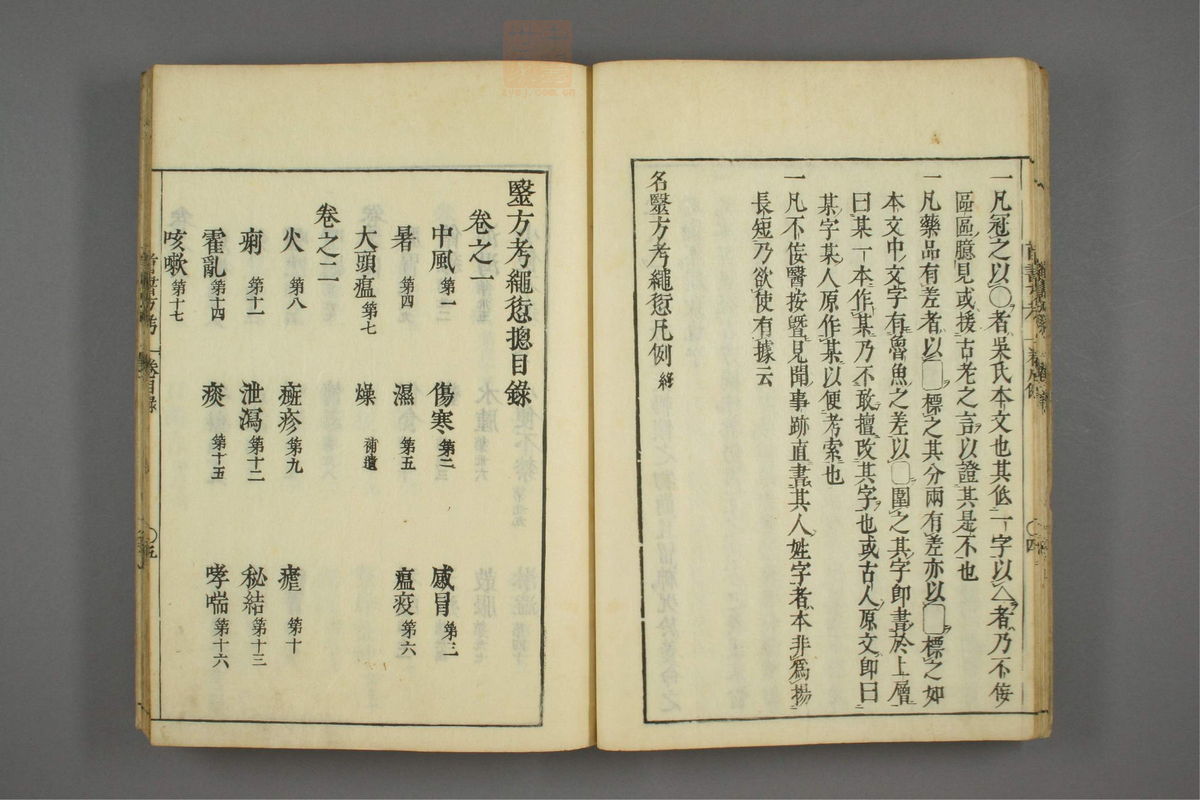 一凡冠之以○者吳氏本文也其低一字以△者乃不佞
區區臆見或援古老之言以證其是不也
一凡藥品有差者以▢標之其分兩有差亦以▢標之如
本文中文字有魯魚之差以▢圍之其字卽書於上層
曰某一本作某乃不敢擅改其字也或古人原文卽曰
某字某人原作某以便考索也
一凡不佞醫按暨見聞事跡直書其人姓字者本非爲揚
長短乃欲使有據云
名毉方考繩愆凡例終
毉方考繩愆摠目錄
卷之一
中風第一 傷寒第二 感冒第三
暑第四 濕第五 瘟疫第六
大頭瘟第七 燥補遺
卷之二
火第八 癍疹第九 瘧第十
痢第十一 泄瀉第十二 秘結第十三
霍亂第十四 痰第十五 哮喘第十六
咳嗽第十七